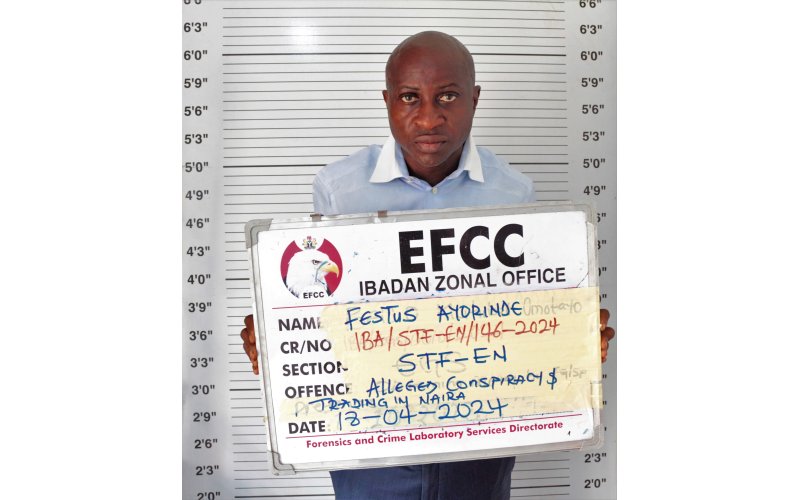 6'6" 6'6"
6'3" 6'3"
6'0" 6'0"
5'9" 5'9"
5'6" 5'6"
5'3" 5'3"
5'0" 5'0"
4'9" 4'9"
4'6" 4'6"
4'3" 4'3"
4'0" 4'0"
3'9" 3'9"
3'6" 3'6"
3'3" 3'3"
3'0" 3'0"
2'9" 2'9"
2'6" 2'6"
2'3" 2'3"
2'0" 2'0"
EFCC
IBADAN ZONAL OFFICE
EFCC
NAME FESTUS AYDRINDE Omotayo
CR/NO IBA/STF-EN/146-2024
SECTION STF-EN
OFFENCE ALLEGED CONSPIRACY $
TRADING IN NAIRA
DATE 18-04-2024
Forensics and Crime Laboratory Services Directorate